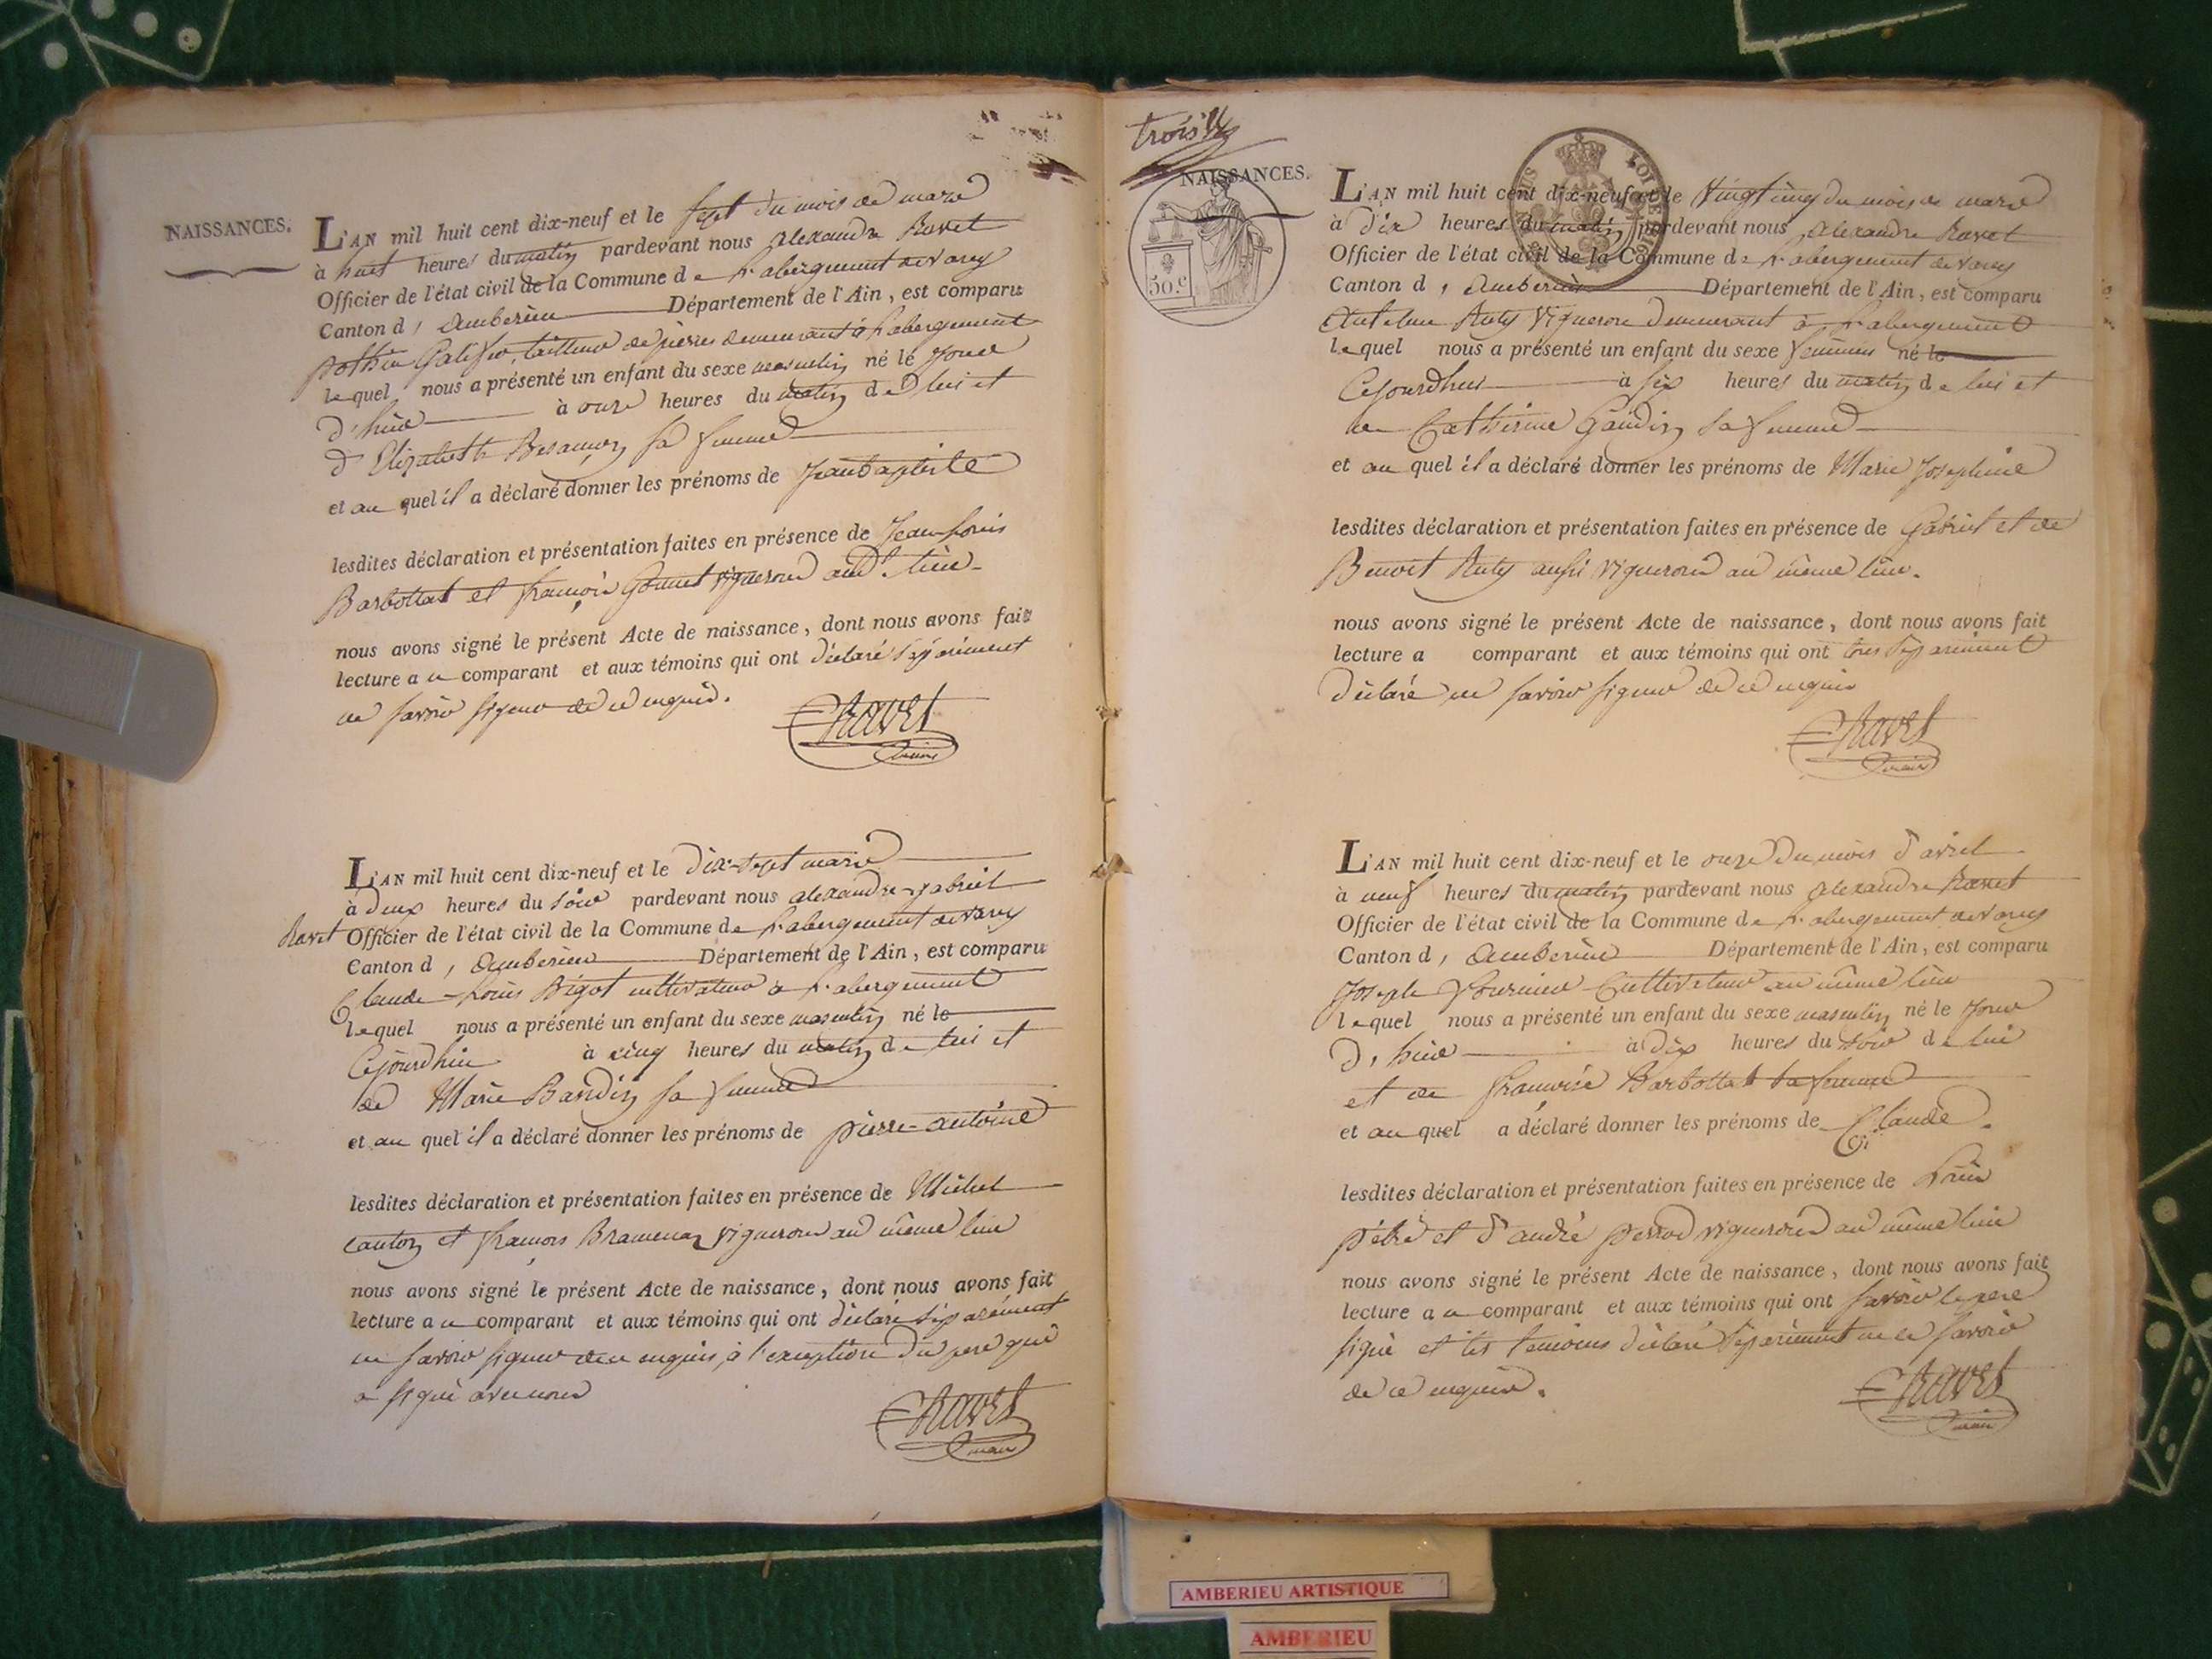 NAISSANCES.
L'AN mil huit cent dix-neuf et le sept du mois de mars
à huit heures du matin pardevant nous alexandre Ravet
Officier de l'état civil de la Commune de L'abergement de varey
Canton d' Amberieu Département de l'Ain, est comparu
pothin tailleur de pierres demeurant à L'abergement
lequel nous a présenté un enfant du sexe masculin né le Jour
d'hier à onze heures du matin de lui et
d'Elizabeth Besançon sa femme
et au quel il a déclaré donner les prénoms de Jean baptiste
lesdites déclaration et présentation faites en présence de Jean Louis
Barbollat et françois Gonnet vignerons aud. lieu
nous avons signé le présent Acte de naissance, dont nous avons fait
lecture au comparant et aux témoins qui ont déclaré séparément
ne savoir signer de ce enquis.
Ravet
maire
L'AN mil huit cent dix-neuf et le dix-sept mars
à deux heures du soir pardevant nous alexandre-gabriel
Ravet Officier de l'état civil de la Commune de L'abergement de varey
Canton d' Amberieu Département de l'Ain, est comparu
Claude-Louis Bigot cultivateur à L'abergement
lequel nous a présenté un enfant du sexe masculin né le
Cejourdhui à cinq heures du matin de lui et
de Marie Bandin sa femme
et au quel il a déclaré donner les prénoms de pierre-antoine
lesdites déclaration et présentation faites en présence de Michel
canton et françois vignerons au même lieu
nous avons signé le présent Acte de naissance, dont nous avons fait
lecture au comparant et aux témoins qui ont déclaré séparément
ne savoir signer de ce enquis, à l'exception du pere qui
a signé avec nous
Ravet
maire
trois
NAISSANCES.
50.c
LOI DE 1816
L'AN mil huit cent dix-neuf et le vingt cinq du mois de mars
à dix heures du matin pardevant nous alexandre Ravet
Officier de l'état civil de la Commune de L'abergement de varey
Canton d' Amberieu Département de l'Ain, est comparu
Antelme Ruty vigneron demeurant à L'abergement
lequel nous a présenté un enfant du sexe féminin né le
Cejourdhui à six heures du matin de lui et
de Catherine Gandin sa femme
et au quel il a déclaré donner les prénoms de Marie Josephine
lesdites déclaration et présentation faites en présence de Gabriel et de
Benoit Ruty aussi vignerons au même lieu.
nous avons signé le présent Acte de naissance, dont nous avons fait
lecture a comparant et aux témoins qui ont tous séparément
déclaré ne savoir signer de ce enquis
Ravet
maire
L'AN mil huit cent dix-neuf et le onze du mois d'avril
à neuf heures du matin pardevant nous alexandre Ravet
Officier de l'état civil de la Commune de L'abergement de varey
Canton d' Amberieu Département de l'Ain, est comparu
Joseph fournier Cultivateur au même lieu
lequel nous a présenté un enfant du sexe masculin né le Jour
d'hier à dix heures du soir de lui
et de françoise Barbollat sa femme
et au quel a déclaré donner les prénoms de Claude.
lesdites déclaration et présentation faites en présence de Louis
pétré et d'andré perrod vignerons au même lieu
nous avons signé le présent Acte de naissance, dont nous avons fait
lecture au comparant et aux témoins qui ont savoir le pere
signé et les temoins déclaré séparément ne le savoir
de ce enquis.
Ravet
maire
AMBERIEU ARTISTIQUE
AMBERIEU